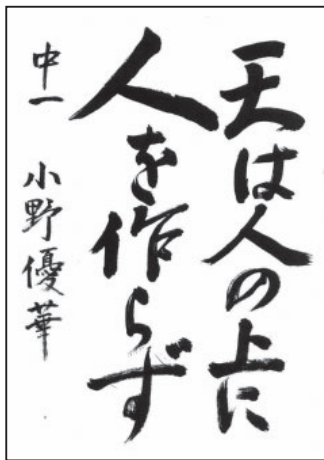 天は人の上に
人を作らず
中一 小野優華